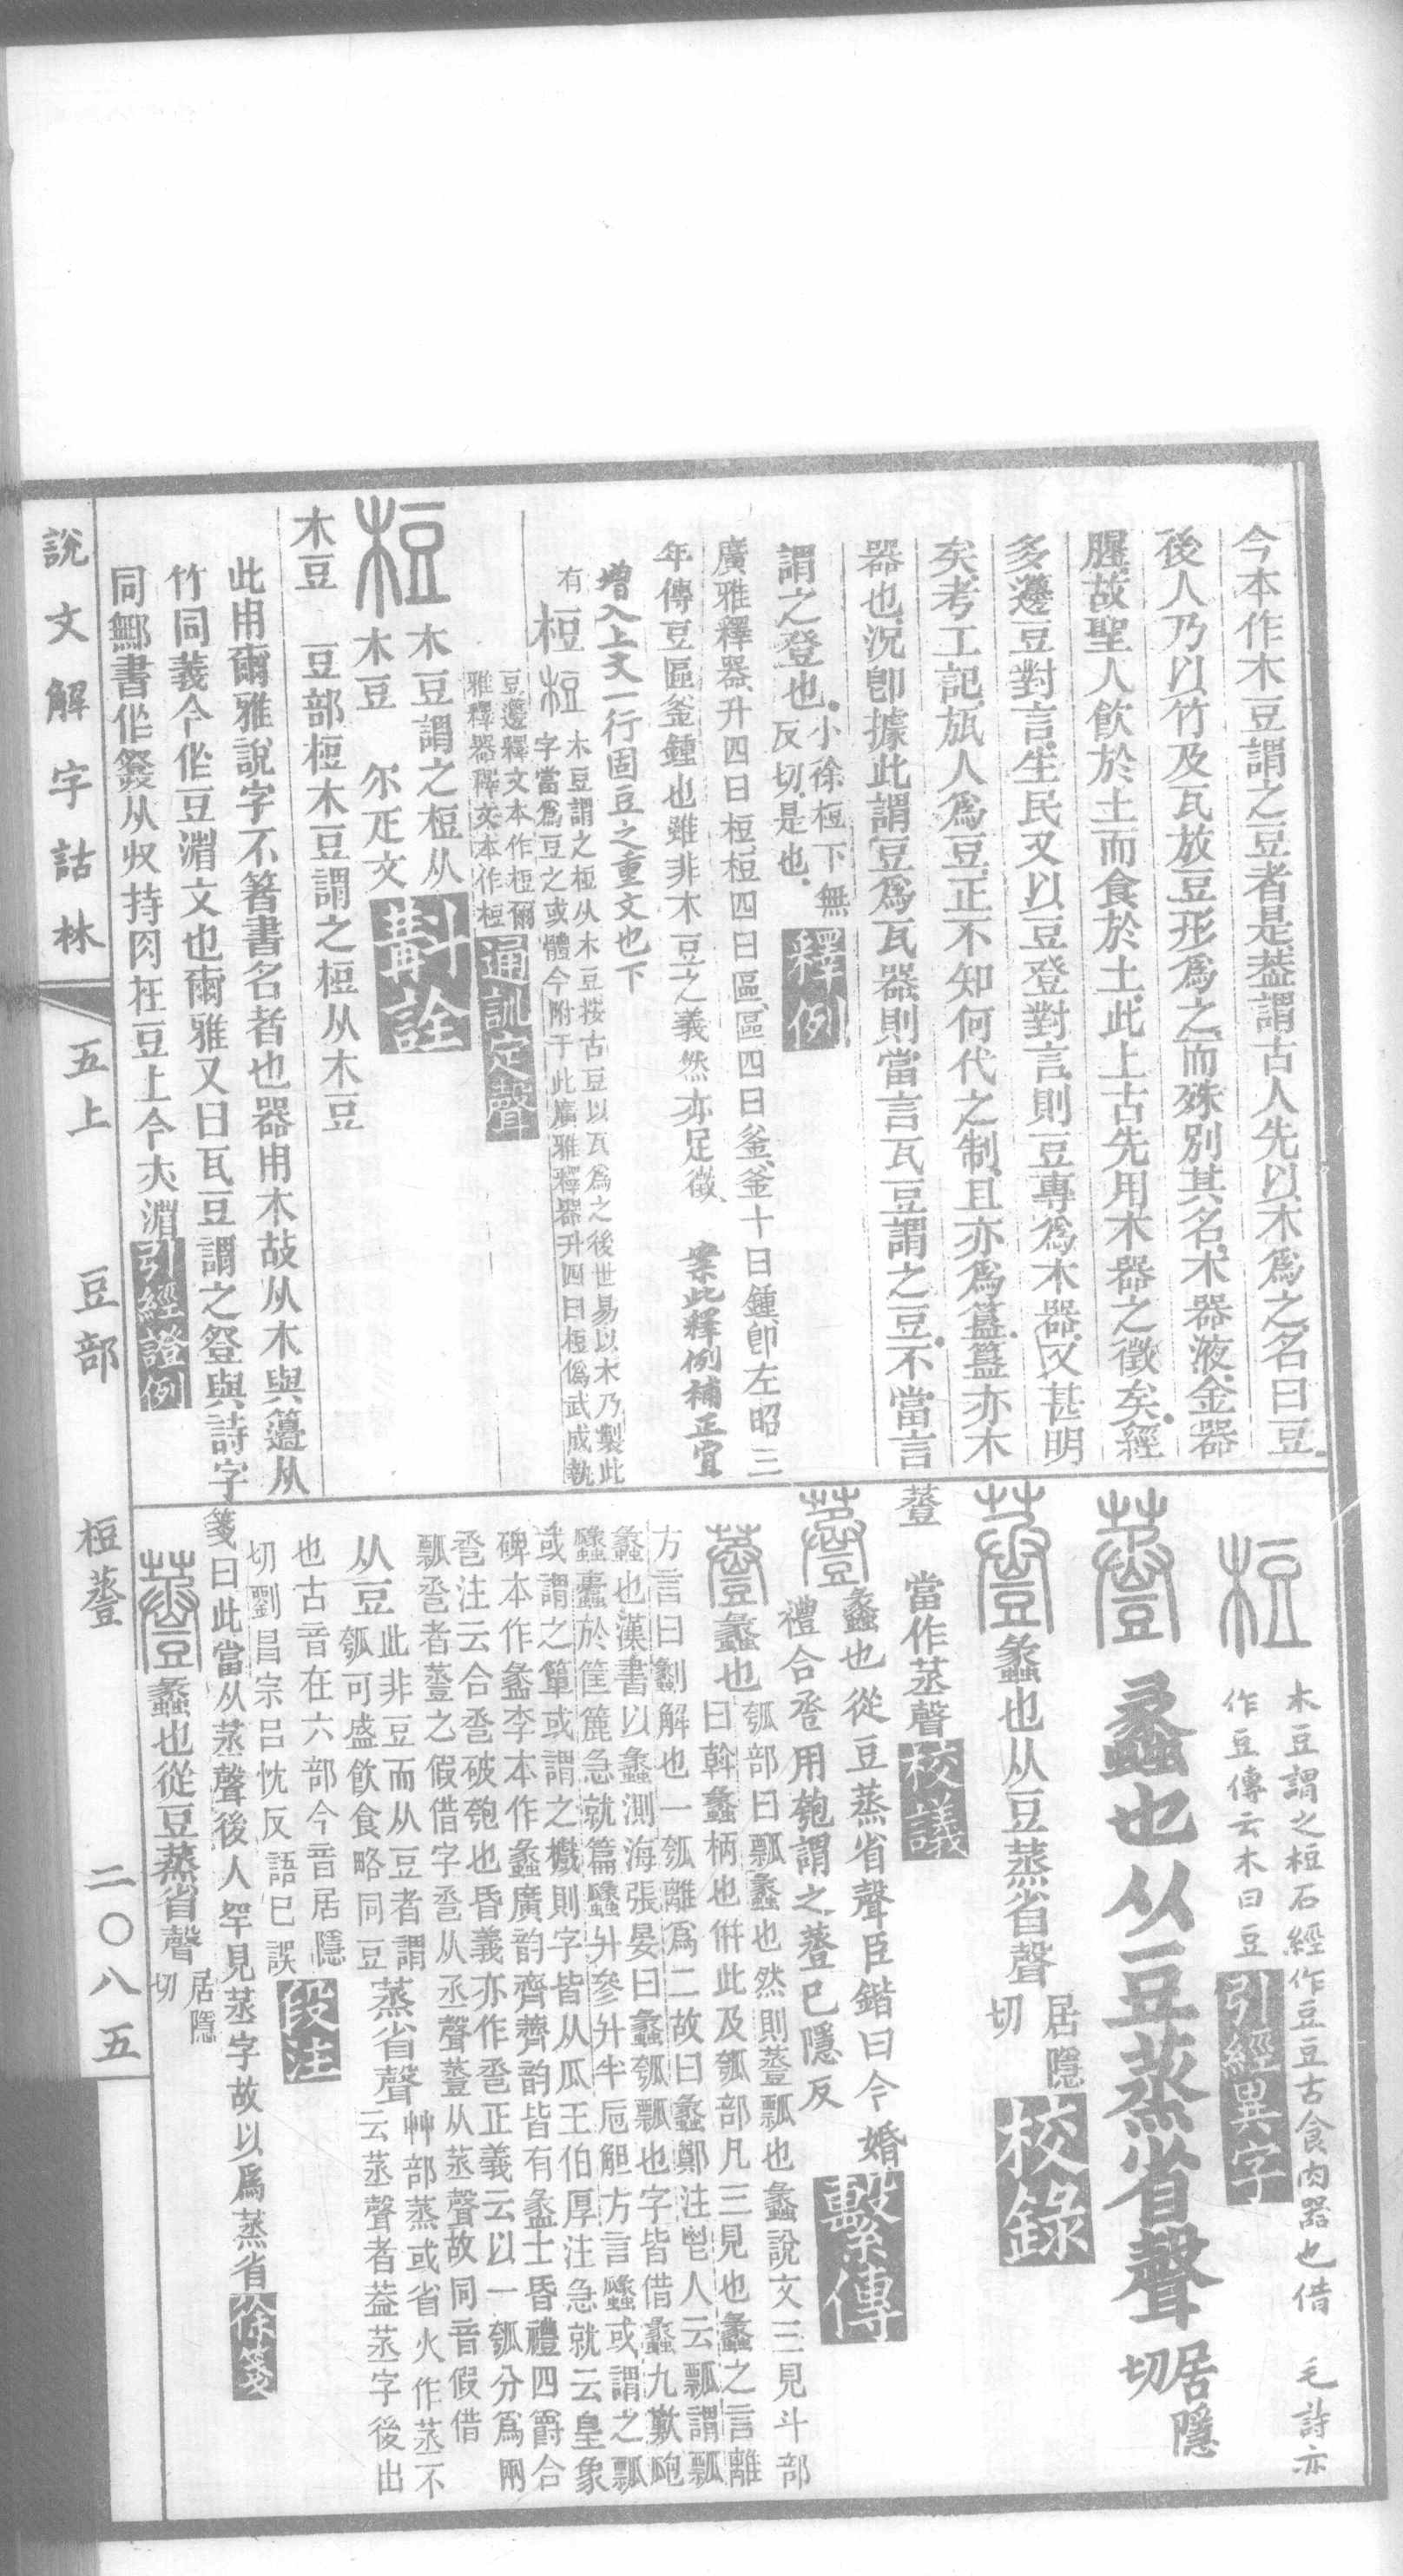 今本作木豆謂之豆者是葢謂古人先以木爲之名曰豆
後人乃以竹及瓦放豆形爲之而殊別其名木器液金器
腥故聖人飮於土而食於土此上古先用木器之徵矣經
多籩豆對言生民又以豆登對言則豆專爲木器又甚明
矣考工記瓬人爲豆正不知何代之制且亦爲簋簋亦木
器也況卽據此謂豆爲瓦器則當言瓦豆謂之豆不當言
謂之登也小徐梪下無反切是也 釋例
廣雅釋器升四曰梪梪四曰區區四曰釜釜十曰鍾卽左昭三
年傳豆區釜鍾也雖非木豆之義然亦足徵 案此釋例補正宜
增入上文一行固豆之重文也下
有梪 梪木豆謂之梪从木豆按古豆以瓦爲之後世易以木乃製此
字當爲豆之或體今附于此廣雅釋器升四曰梪僞武成執
豆籩釋文本作梪爾
雅釋器釋文本作梪 通訓定聲
梪木豆謂之梪从
木豆 尒疋文 斠詮
木豆 豆部梪木豆謂之梪从木豆
此用爾雅說字不箸書名者也器用木故从木與籩从
竹同義今作豆湝文也爾雅又曰瓦豆謂之登與詩字
同鄦書作䇺从収持肉在豆上今亦湝 引經證例
梪木豆謂之梪石經作豆豆古食肉器也借 毛詩亦
作豆傳云木曰豆 引經異字
䔲 蠡也从豆蒸省聲居隱切
䔲蠡也从豆蒸省聲居隱切 校錄
䔲 當作烝聲 校議
䔲蠡也從豆蒸省聲臣鍇曰今婚
禮合卺用匏謂之䔲已隱反 繫傳
䔲蠡也瓠部曰瓢蠡也然則䔲瓢也蠡說文三見斗部
曰斡蠡柄也倂此及瓠部凡三見也蠡之言離
方言曰劙解也一瓠離爲二故曰蠡鄭注鬯人云瓢謂瓢
蠡也漢書以蠡測海張晏曰蠡瓠瓢也字皆借蠡九歎㼎
蠡於筐簏急就篇蠡升參升半卮觛方言或謂之瓢
或謂之簞或謂之㰕則字皆从瓜王伯厚注急就云皇象
碑本作盠李本作蠡廣韵齊薺韵皆有盠士昏禮四爵合
卺注云合卺破匏也昏義亦作卺正義云以一瓠分爲兩
瓢卺者䔲之假借字卺从丞聲䔲从蒸聲故同音假借
从豆此非豆而从豆者謂瓠可盛飮食略同豆 蒸省聲艸部蒸或省火作䒱不云䒱聲者葢䒱字後出
也古音在六部今音居隱
切劉昌宗呂忱反語已誤 段注
箋曰此當从䒱聲後人罕見䒱字故以爲蒸省 徐箋
䔲蠡也從豆蒸省聲居隱切
說文解字詁林 五上 豆部 梪䔲 二〇八五